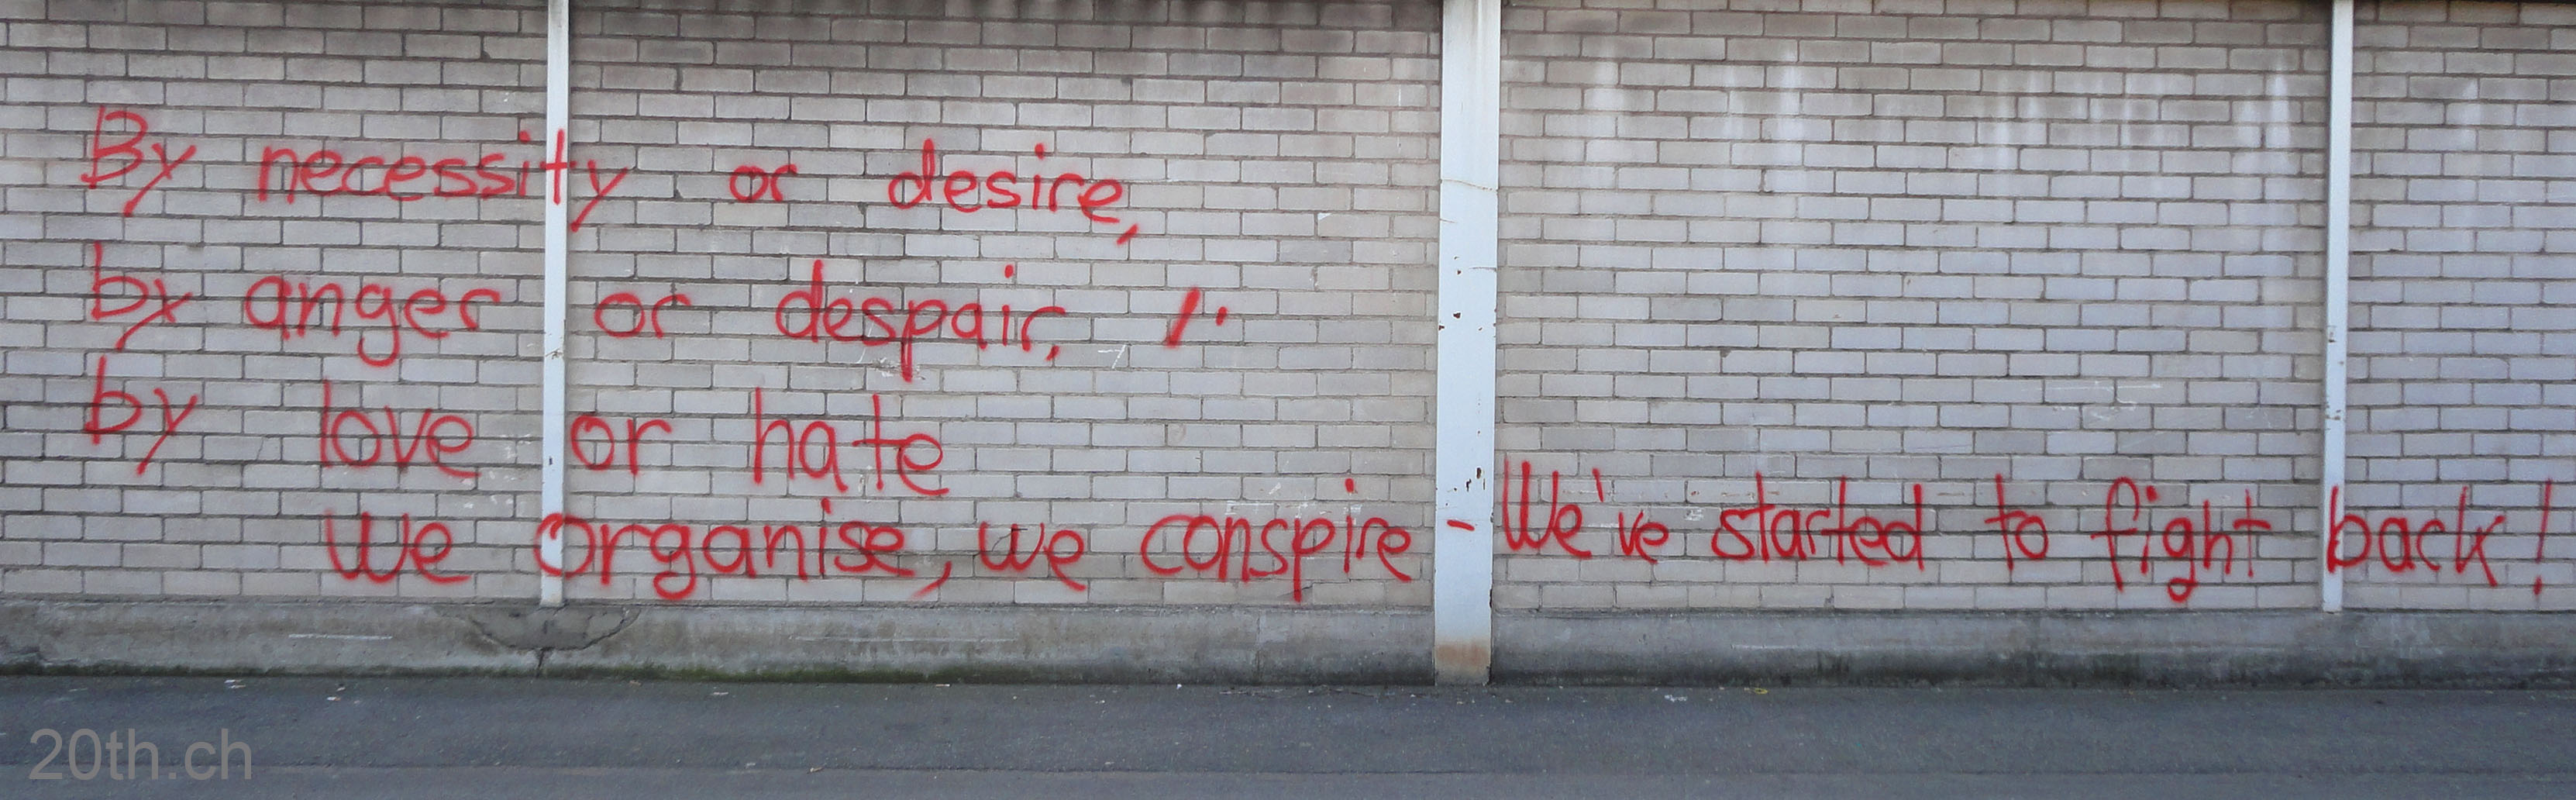 By necessity or desire,
by anger or despair,
by love or hate
we organise, we conspire - We've started to fight back!
20th.ch